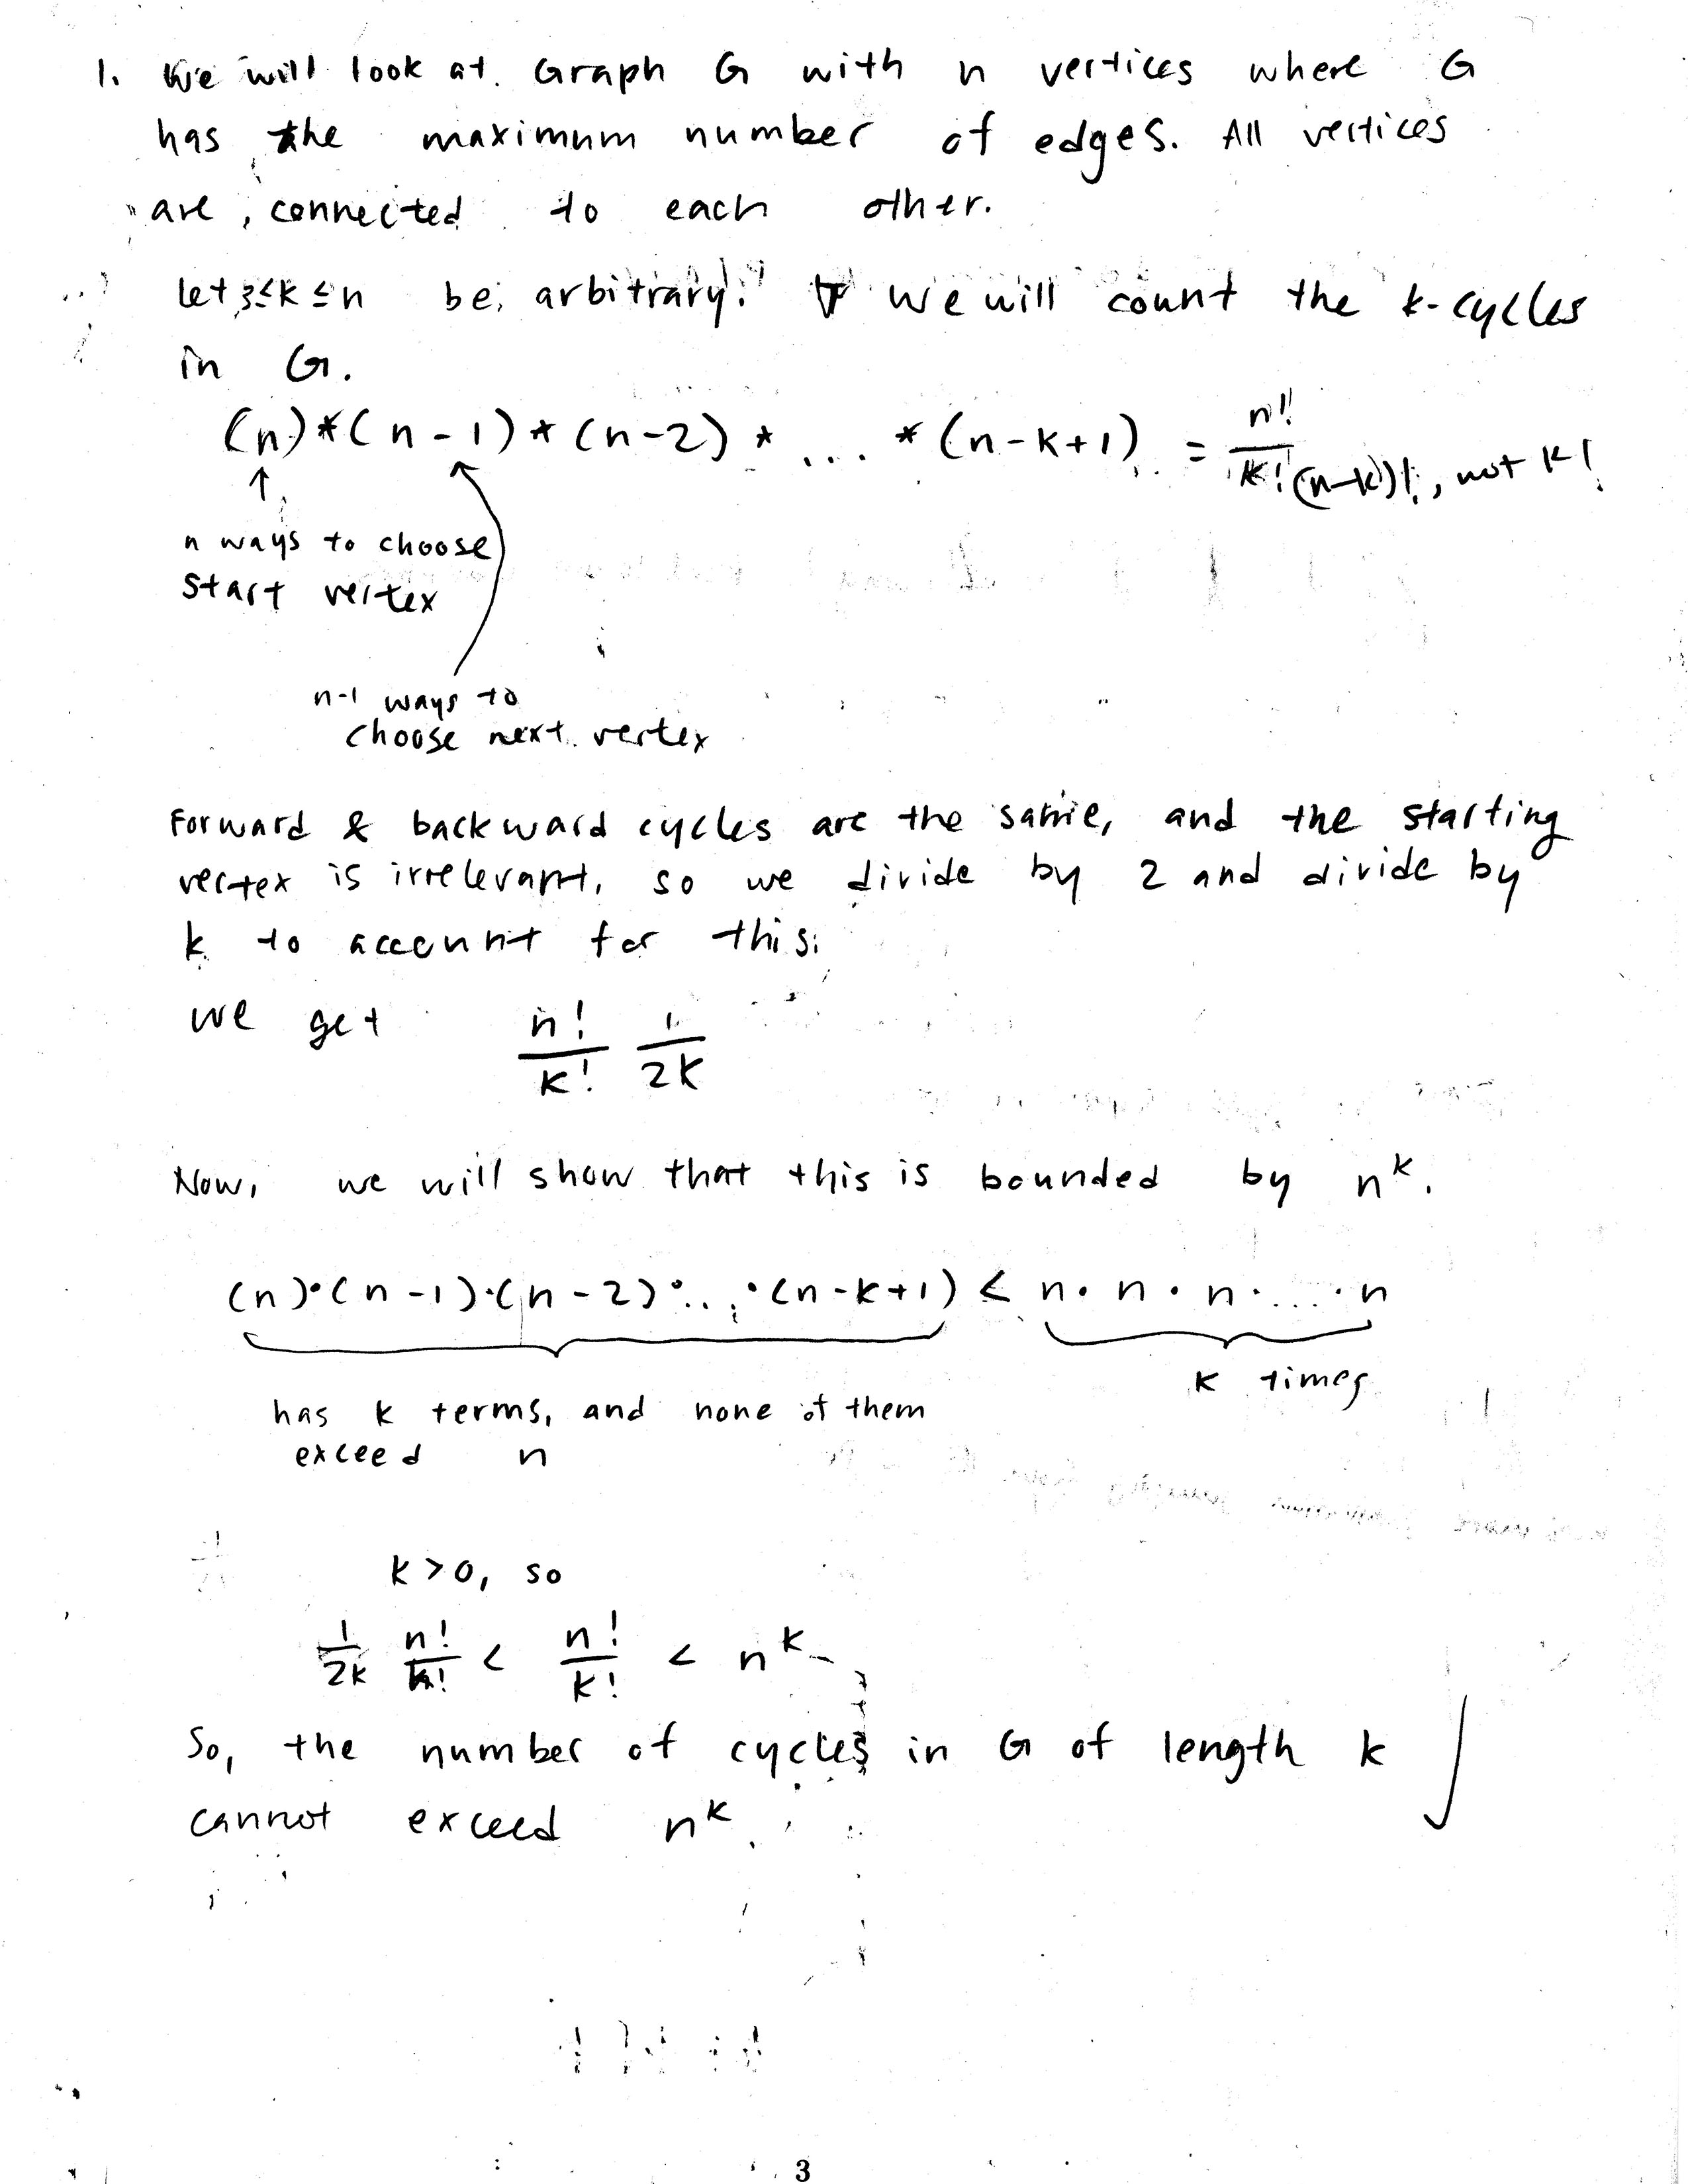 1. We will look at Graph G with n vertices where G
has the maximum number of edges. All vertices
are connected to each other.
let 3≤k≤n be arbitrary. We will count the k-cycles
in G.
(n)*(n-1)*(n-2)* ... *(n-k+1) = n!/k! (n-k)!, not k!
↑
n ways to choose
start vertex
n-1 ways to
choose next vertex
Forward & backward cycles are the same, and the starting
vertex is irrelevant, so we divide by 2 and divide by
k to account for this.
we get n!/k! 1/2k
Now, we will show that this is bounded by n^k.
(n)·(n-1)·(n-2)·...·(n-k+1) < n·n·n·...·n
k times
has k terms, and none of them
exceed n
k>0, so
1/2k n!/k! < n!/k! < n^k
So, the number of cycles in G of length k
cannot exceed n^k.
3